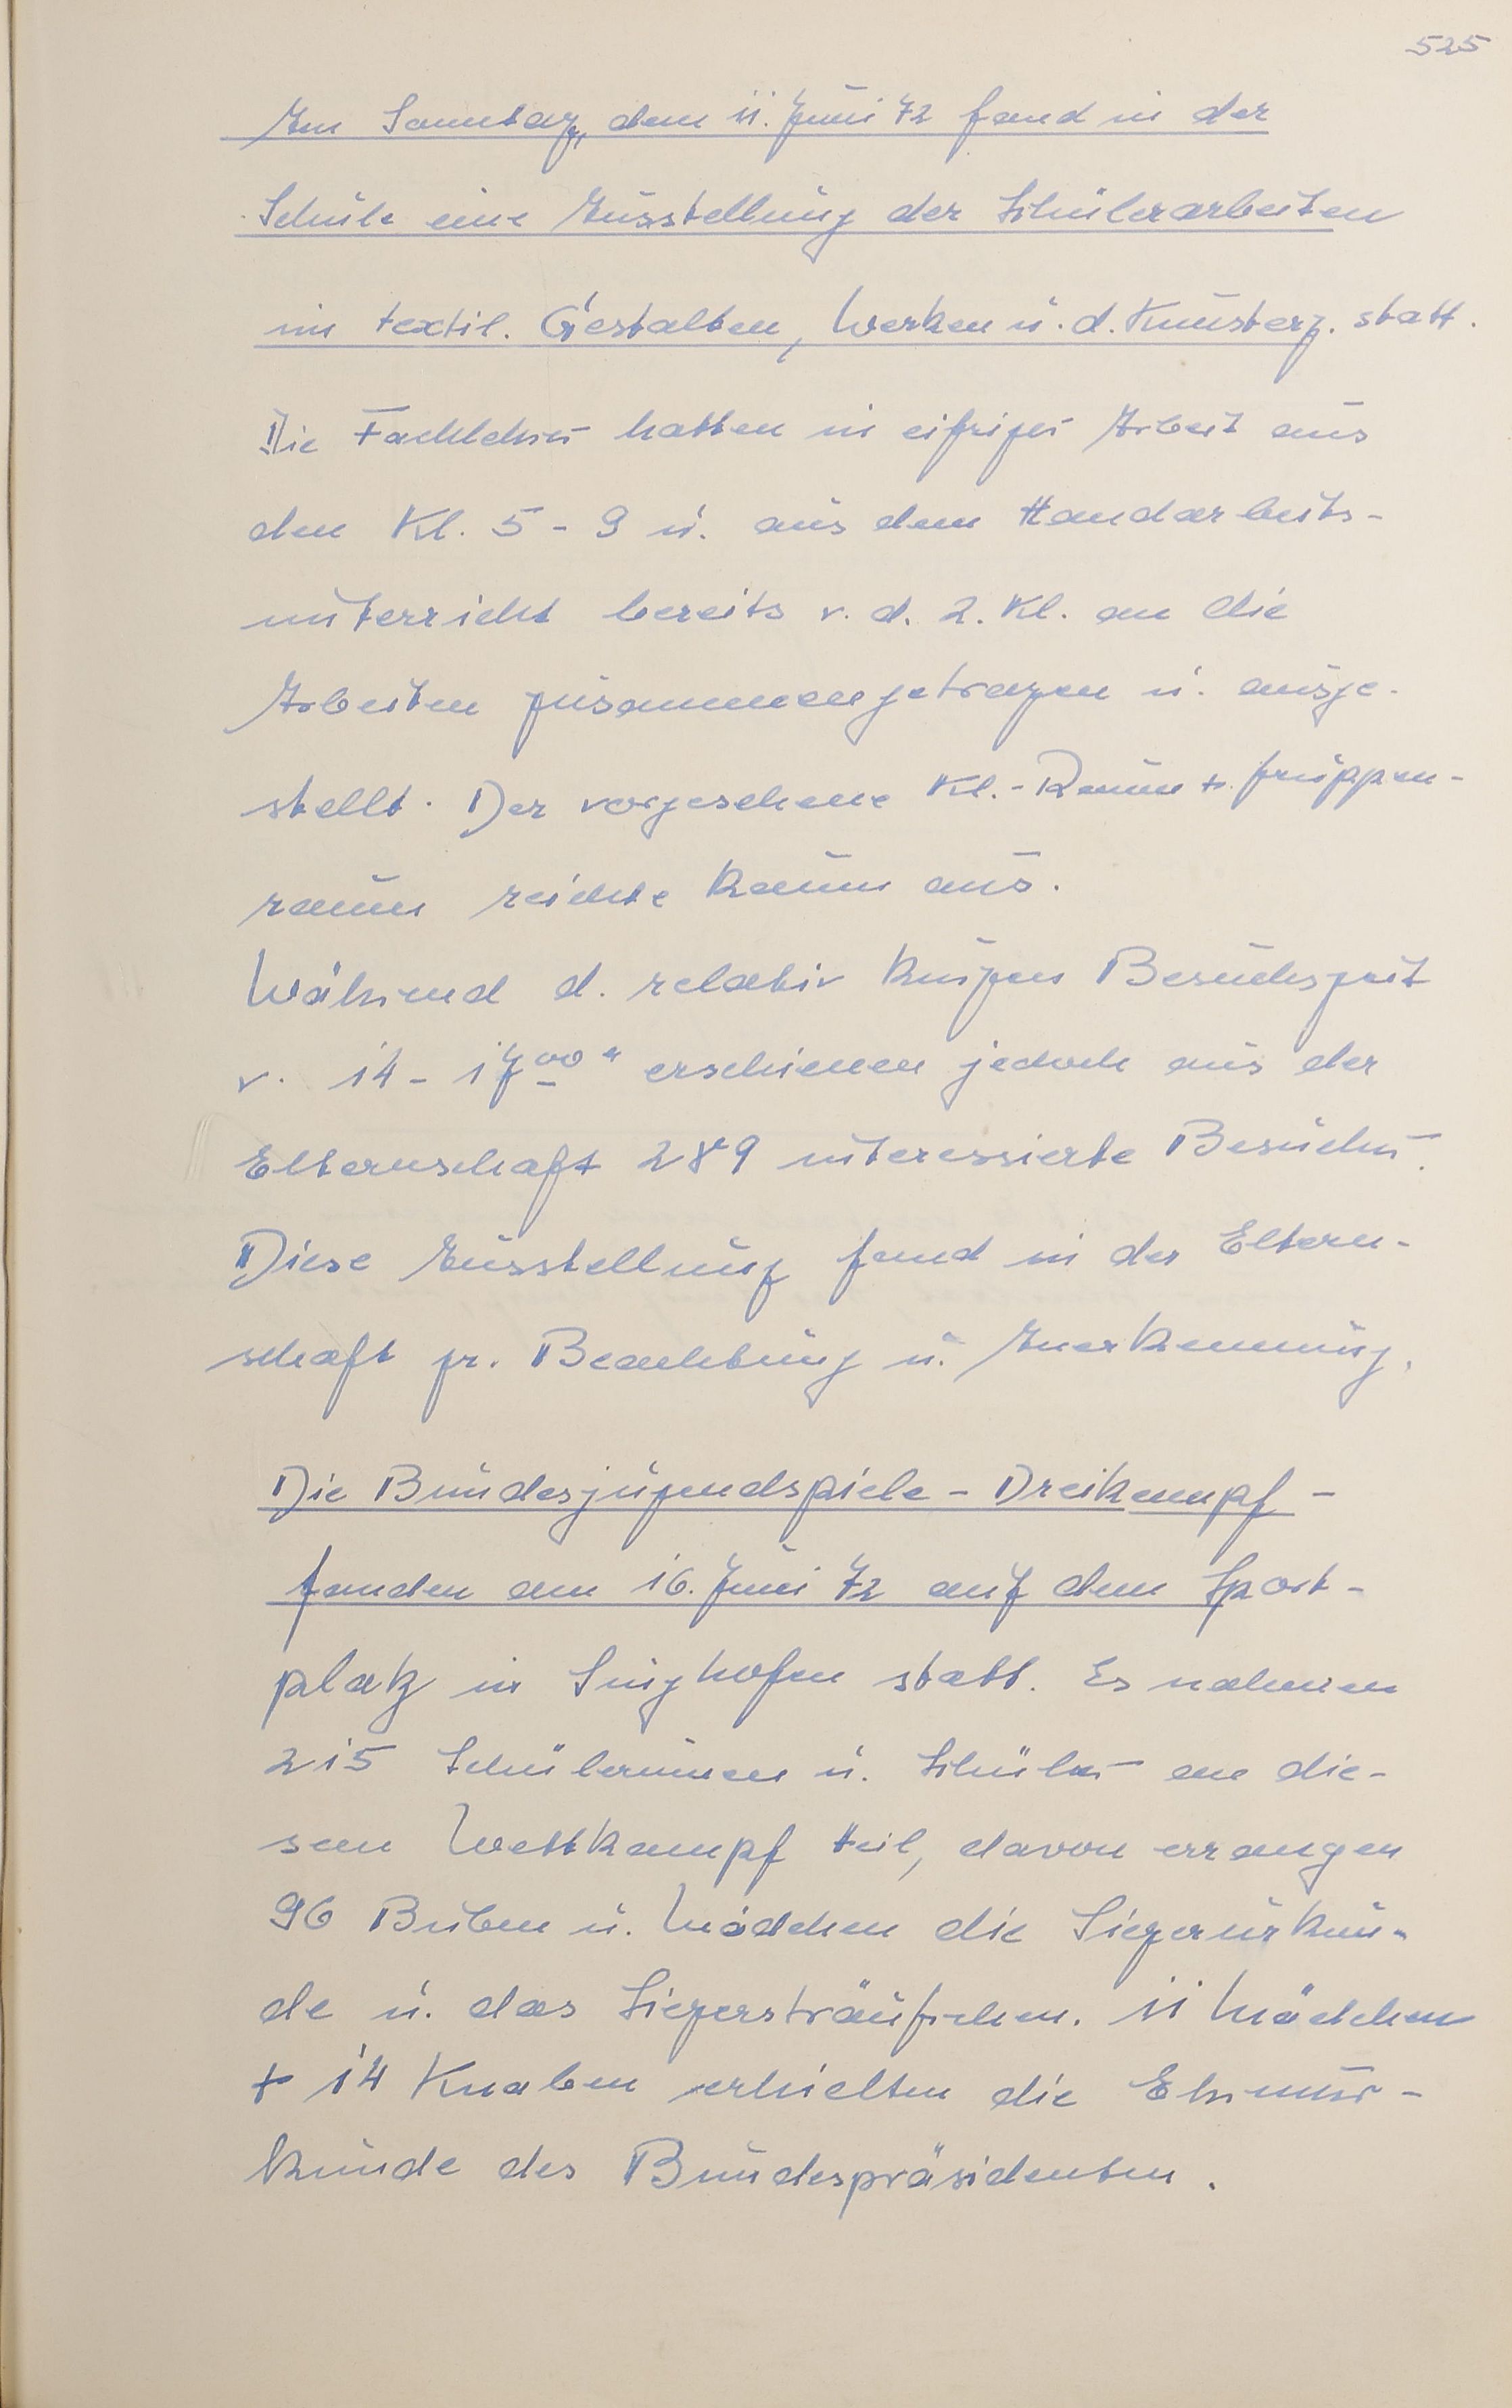 525
Am Sonntag, dem 11. Juni 72 fand in der
Schule eine Ausstellung der Schülerarbeiten
im textil. Gestalten, Werken u. d. Kunsterz. statt.
Die Fachlehrer hatten in eifriger Arbeit aus
den Kl. 5 - 9 u. aus dem Handarbeits-
unterricht bereits v. d. 2. Kl. an die
Arbeiten zusammengetragen u. ausge-
stellt. Der vorgesehene Kl.-Raum + Gruppen-
raum reichte kaum aus.
Während d. relativ kurzen Besuchszeit
v. 14 - 17⁰⁰ " erschienen jedoch aus der
Elternschaft 289 interessierte Besucher.
Diese Ausstellung fand in der Eltern-
schaft gr. Beachtung u. Anerkennung.
Die Bundesjugendspiele - Dreikampf -
fanden am 16. Juni 72 auf dem Sport-
platz in Singhofen statt. Es nahmen
215 Schülerinnen u. Schüler an die-
sem Wettkampf teil, davon errangen
96 Buben u. Mädchen die Siegerurkun-
de u. das Siegersträußchen. 11 Mädchen
+ 14 Knaben erhielten die Ehrenur-
kunde des Bundespräsidenten.